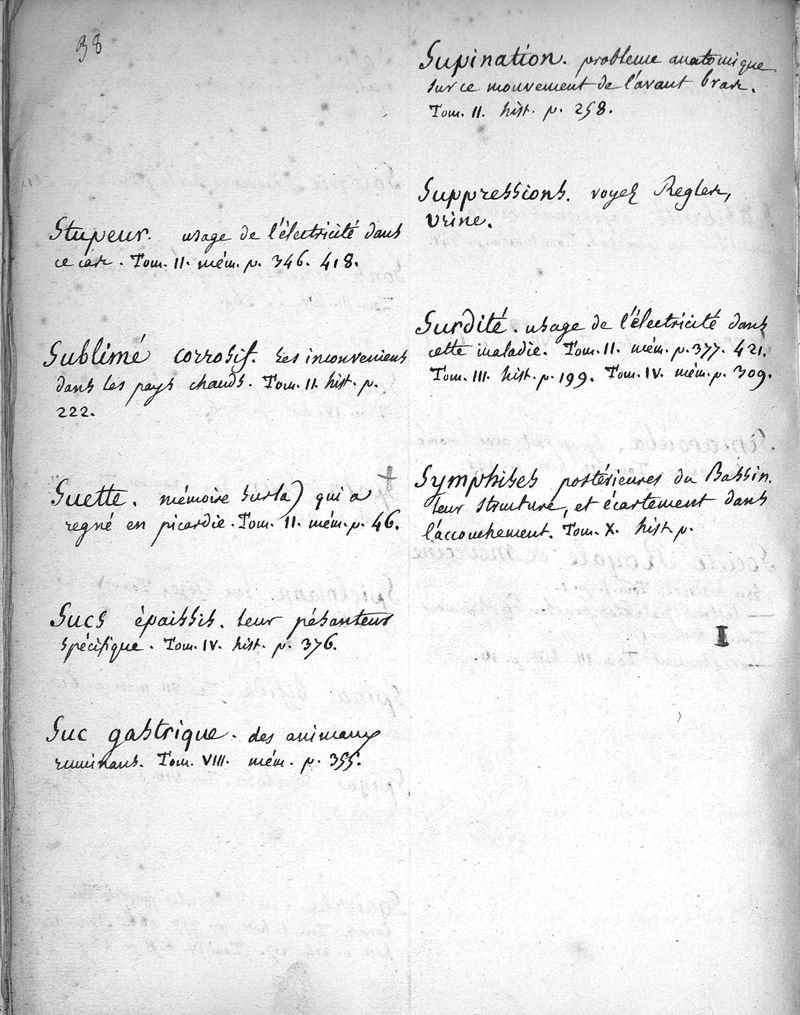 38
Stupeur. usage de l'électricité dans
ce cas. Tom. II. mém. p. 346. 418.
Sublimé corrosif. ses inconveniens
dans les pays chauds. Tom. II. hist. p.
222.
Suette. mémoire sur la) qui a
regné en picardie. Tom. II. mém. p. 46.
Sucs épaissis. leur pésanteur
spécifique. Tom. IV. hist. p. 376.
Suc gastrique. des animaux
ruminans. Tom. VIII. mém. p. 355.
Supination. probleme anatomique
sur ce mouvement de l'avant bras.
Tom. II. hist. p. 258.
Suppressions. voyez Regles,
Urine.
Surdité. usage de l'électricité dans
cette maladie. Tom. II. mém. p. 377. 421.
Tom. III. hist. p. 199. Tom. IV. mém. p. 309.
Symphises postérieures du Bassin.
leur structure, et écartement dans
l'accouchement. Tom. X. hist. p.
I